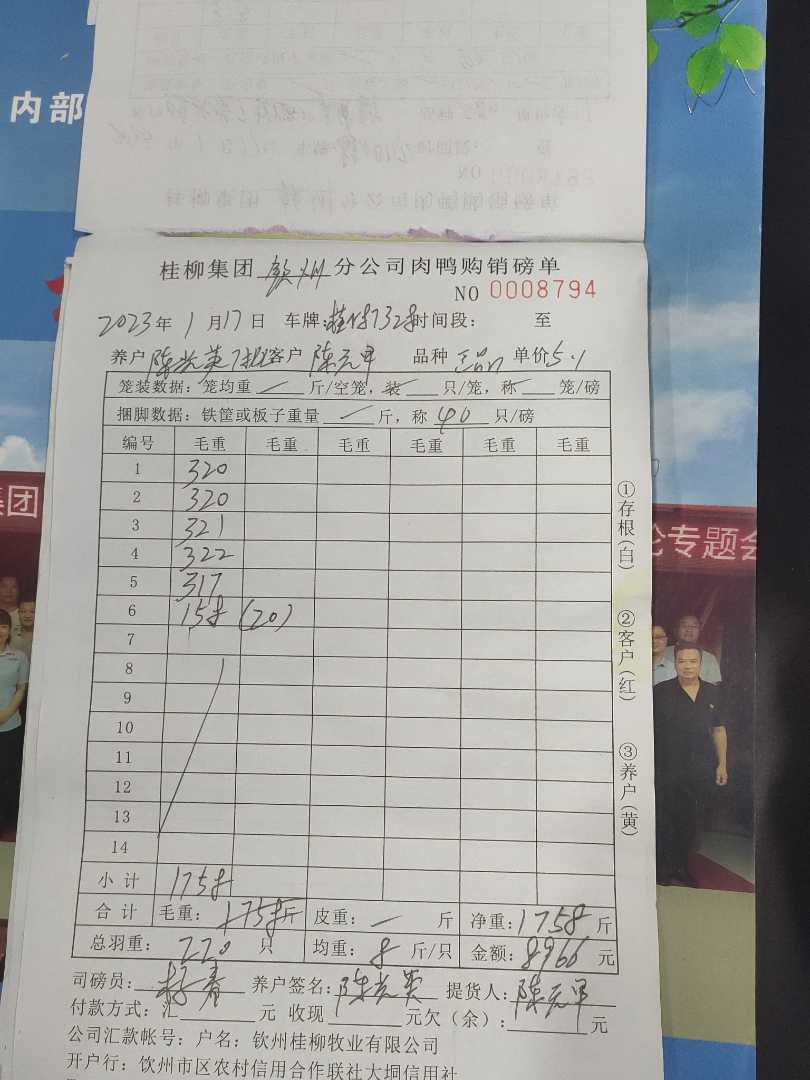 内部
桂柳集团 钦州 分公司肉鸭购销磅单
NO 0008794
2023年 1月17日 车牌: 时间段: 至
养户 客户 陈元甲 品种 单价5.1
笼装数据: 笼均重 — 斤/空笼, 装 — 只/笼, 称 — 笼/磅
捆脚数据: 铁筐或板子重量 — 斤, 称 40 只/磅
编号 毛重 毛重 毛重 毛重 毛重 毛重
1 320
2 320
3 321
4 322
5 317
6 158 (20)
7
8
9
10
11
12
13
14
小计 1758
合计 毛重: 1758斤 皮重: — 斤 净重: 1758斤
总羽重: 220 只 均重: 8 斤/只 金额: 8966 元
司磅员: 养户签名: 提货人: 陈元甲
付款方式: 汇 元 收现 元欠(余): 元
公司汇款帐号: 户名: 钦州桂柳牧业有限公司
开户行: 钦州市区农村信用合作联社大垌信用社
①存根(白)
②客户(红)
③养户(黄)
集团
论专题会